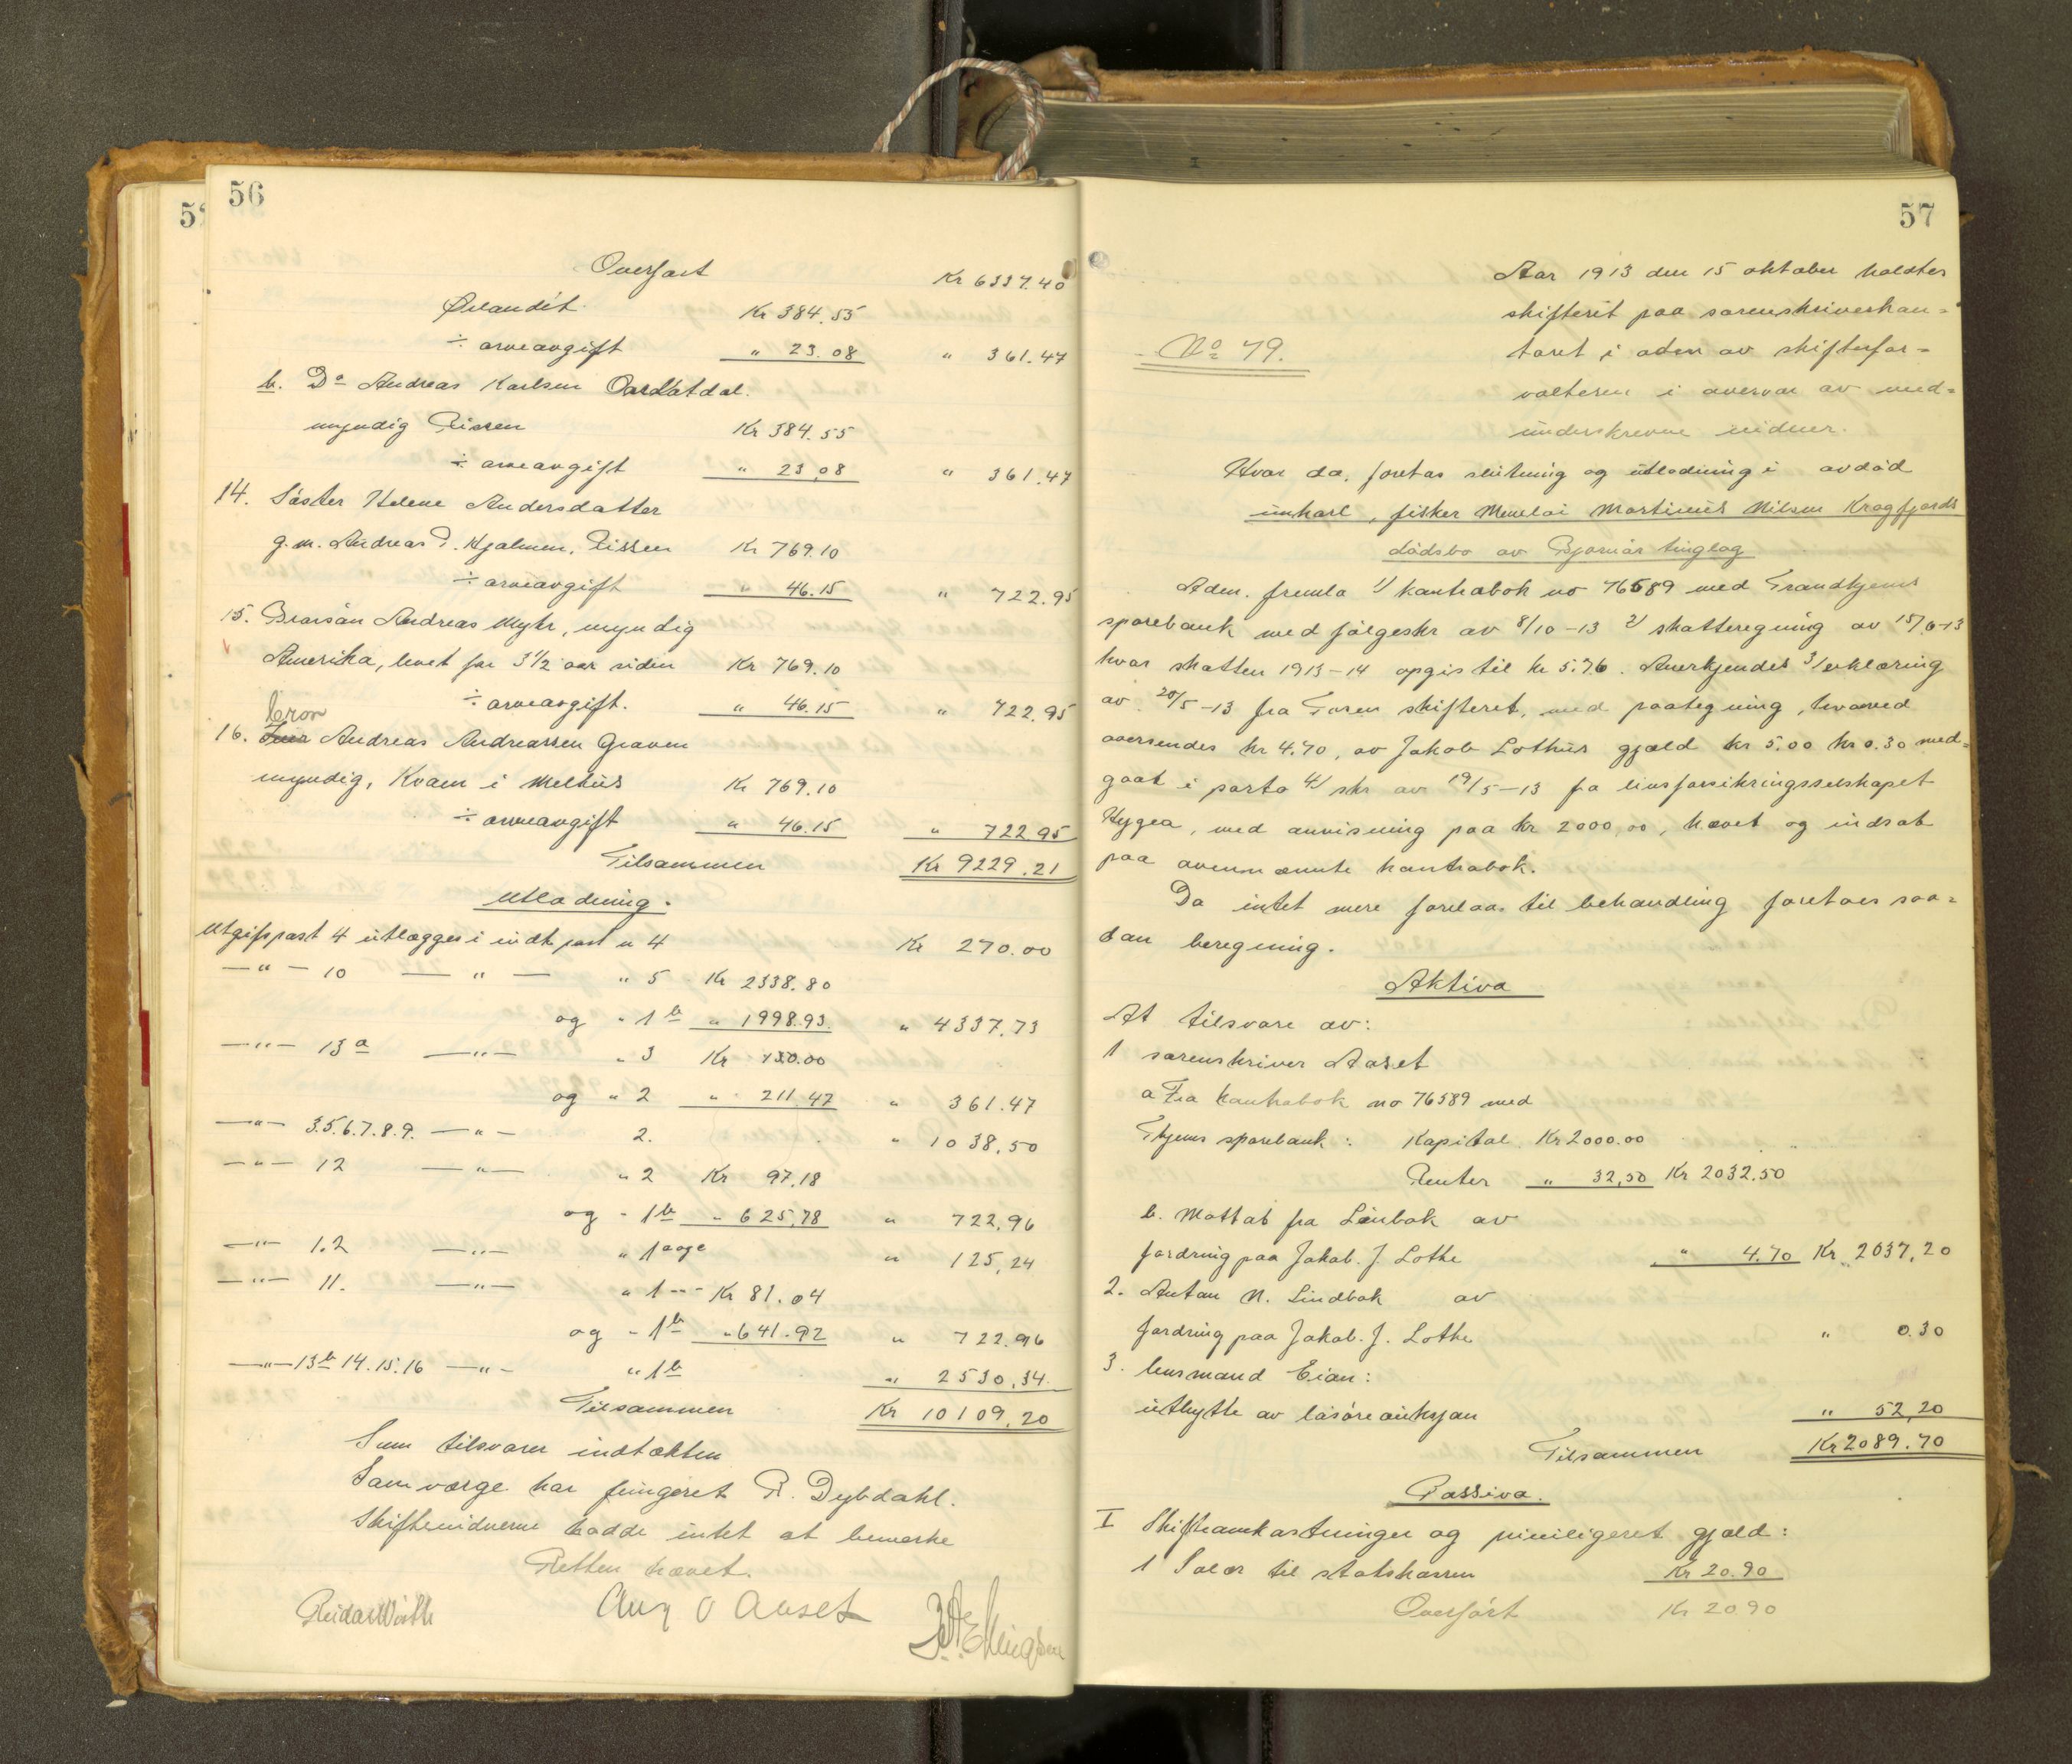 56
Overført Kr 6337.40
Ørlandet Kr 384.55
÷ arveavgift " 23.08 " 361.47
b. Do Andreas Karlsen
myndig Rissen Kr 384.55
÷ arveavgift " 23,08 " 361.47
14. Søster Helene Andersdatter
g.m. Andreas P. Hjalmen, Rissen Kr 769.10
÷ arveavgift " 46.15 " 722.95
15. Brorsøn Andreas Myhr, myndig
Amerika, levet for 3 1/2 aar siden Kr 769.10
÷ arveavgift. " 46.15 " 722.95
bror
16. Andreas Andreassen Graven
myndig, Kvaen i Melhus Kr 769.10
÷ arveavgift " 46.15 " 722.95
Tilsammen Kr 9229.21
Utlodning.
Utgifspost 4 utlægges i indt. post n 4 Kr 270.00
—"— 10 —"— " 5 Kr 2338.80
og " 1 b " 1998.93 " 4337.73
—"— 13 a —"— " 3 Kr 150.00
og " 2 " 211.47 " 361.47
—"— 3.5.6.7.8.9. —"— 2. " 1038,50
—"— 12 —"— " 2 Kr 97.18
og " 1 b " 625,78 " 722,96
—"— 1.2 —"— " 1 a og c " 125,24
—"— 11. —"— " 1 -"- Kr 81.04
og " 1 b " 641.92 " 722.96
—"— 13 b 14.15.16 —"— " 1 b " 2530,34
Tilsammen Kr 10109,20
Som tilsvarer indtækten
Som værge har fungeret P. Dybdahl.
Skiftevidnerne hadde intet at bemerke
Retten hævet.
Aug O Aaset
57
Aar 1913 den 15 oktober holdtes
skifteret paa sorenskriverkon=
No 79. toret i aden av skiftefor=
valteren i overvær av med=
underskrevne vidner.
Hvor da. foretas slutning og utlodning i avdød
unkarl, fisker Menelai Martinus Nilsen Kragfjords
dødsbo av Bjørnør tinglag
Adm. fremla 1/ kontrabok no 76589 med Trondhjems
sparebank med følgeskr av 8/10-13 2/ skatteregning av 15/6-13
hvor skatten 1913-14 opgis til kr 5.76. Anerkjendes 3/ erklæring
av 20/5-13 fra Fosen skifteret, med paategning, hvorved
oversendes kr 4.70, av Jakob Lothes gjæld kr 5.00 kr 0.30 med=
gaat i porto 4/ skr av 19/5-13 fra livsforsikringsselskapet
Hygea, med anvisning paa kr 2000,00, hævet og indsat
paa ovennævnte kontrabok.
Da intet mere forelaa til behandling foretoes saa=
dan beregning.
Aktiva
At tilsvare av:
1 sorenskriver Aaset
a Fra kontrabok no 76589 med
Thjems sparebank: Kapital Kr 2000.00
Renter " 32,50 Kr 2032.50
b. Mottat fra Linbak av
fordring paa Jakob. J. Lothe " 4.70 Kr 2037,20
2. Anton N. Lindbak av
fordring paa Jakob. J. Lothe " 0.30
3. lensmand Eian:
utbytte av løsøreauksjon " 52,20
Tilsammen Kr 2089.70
Passiva.
I Skifteomkostninger og priviligeret gjæld:
1 Salær til statskassen Kr 20.90
Overført Kr 20.90